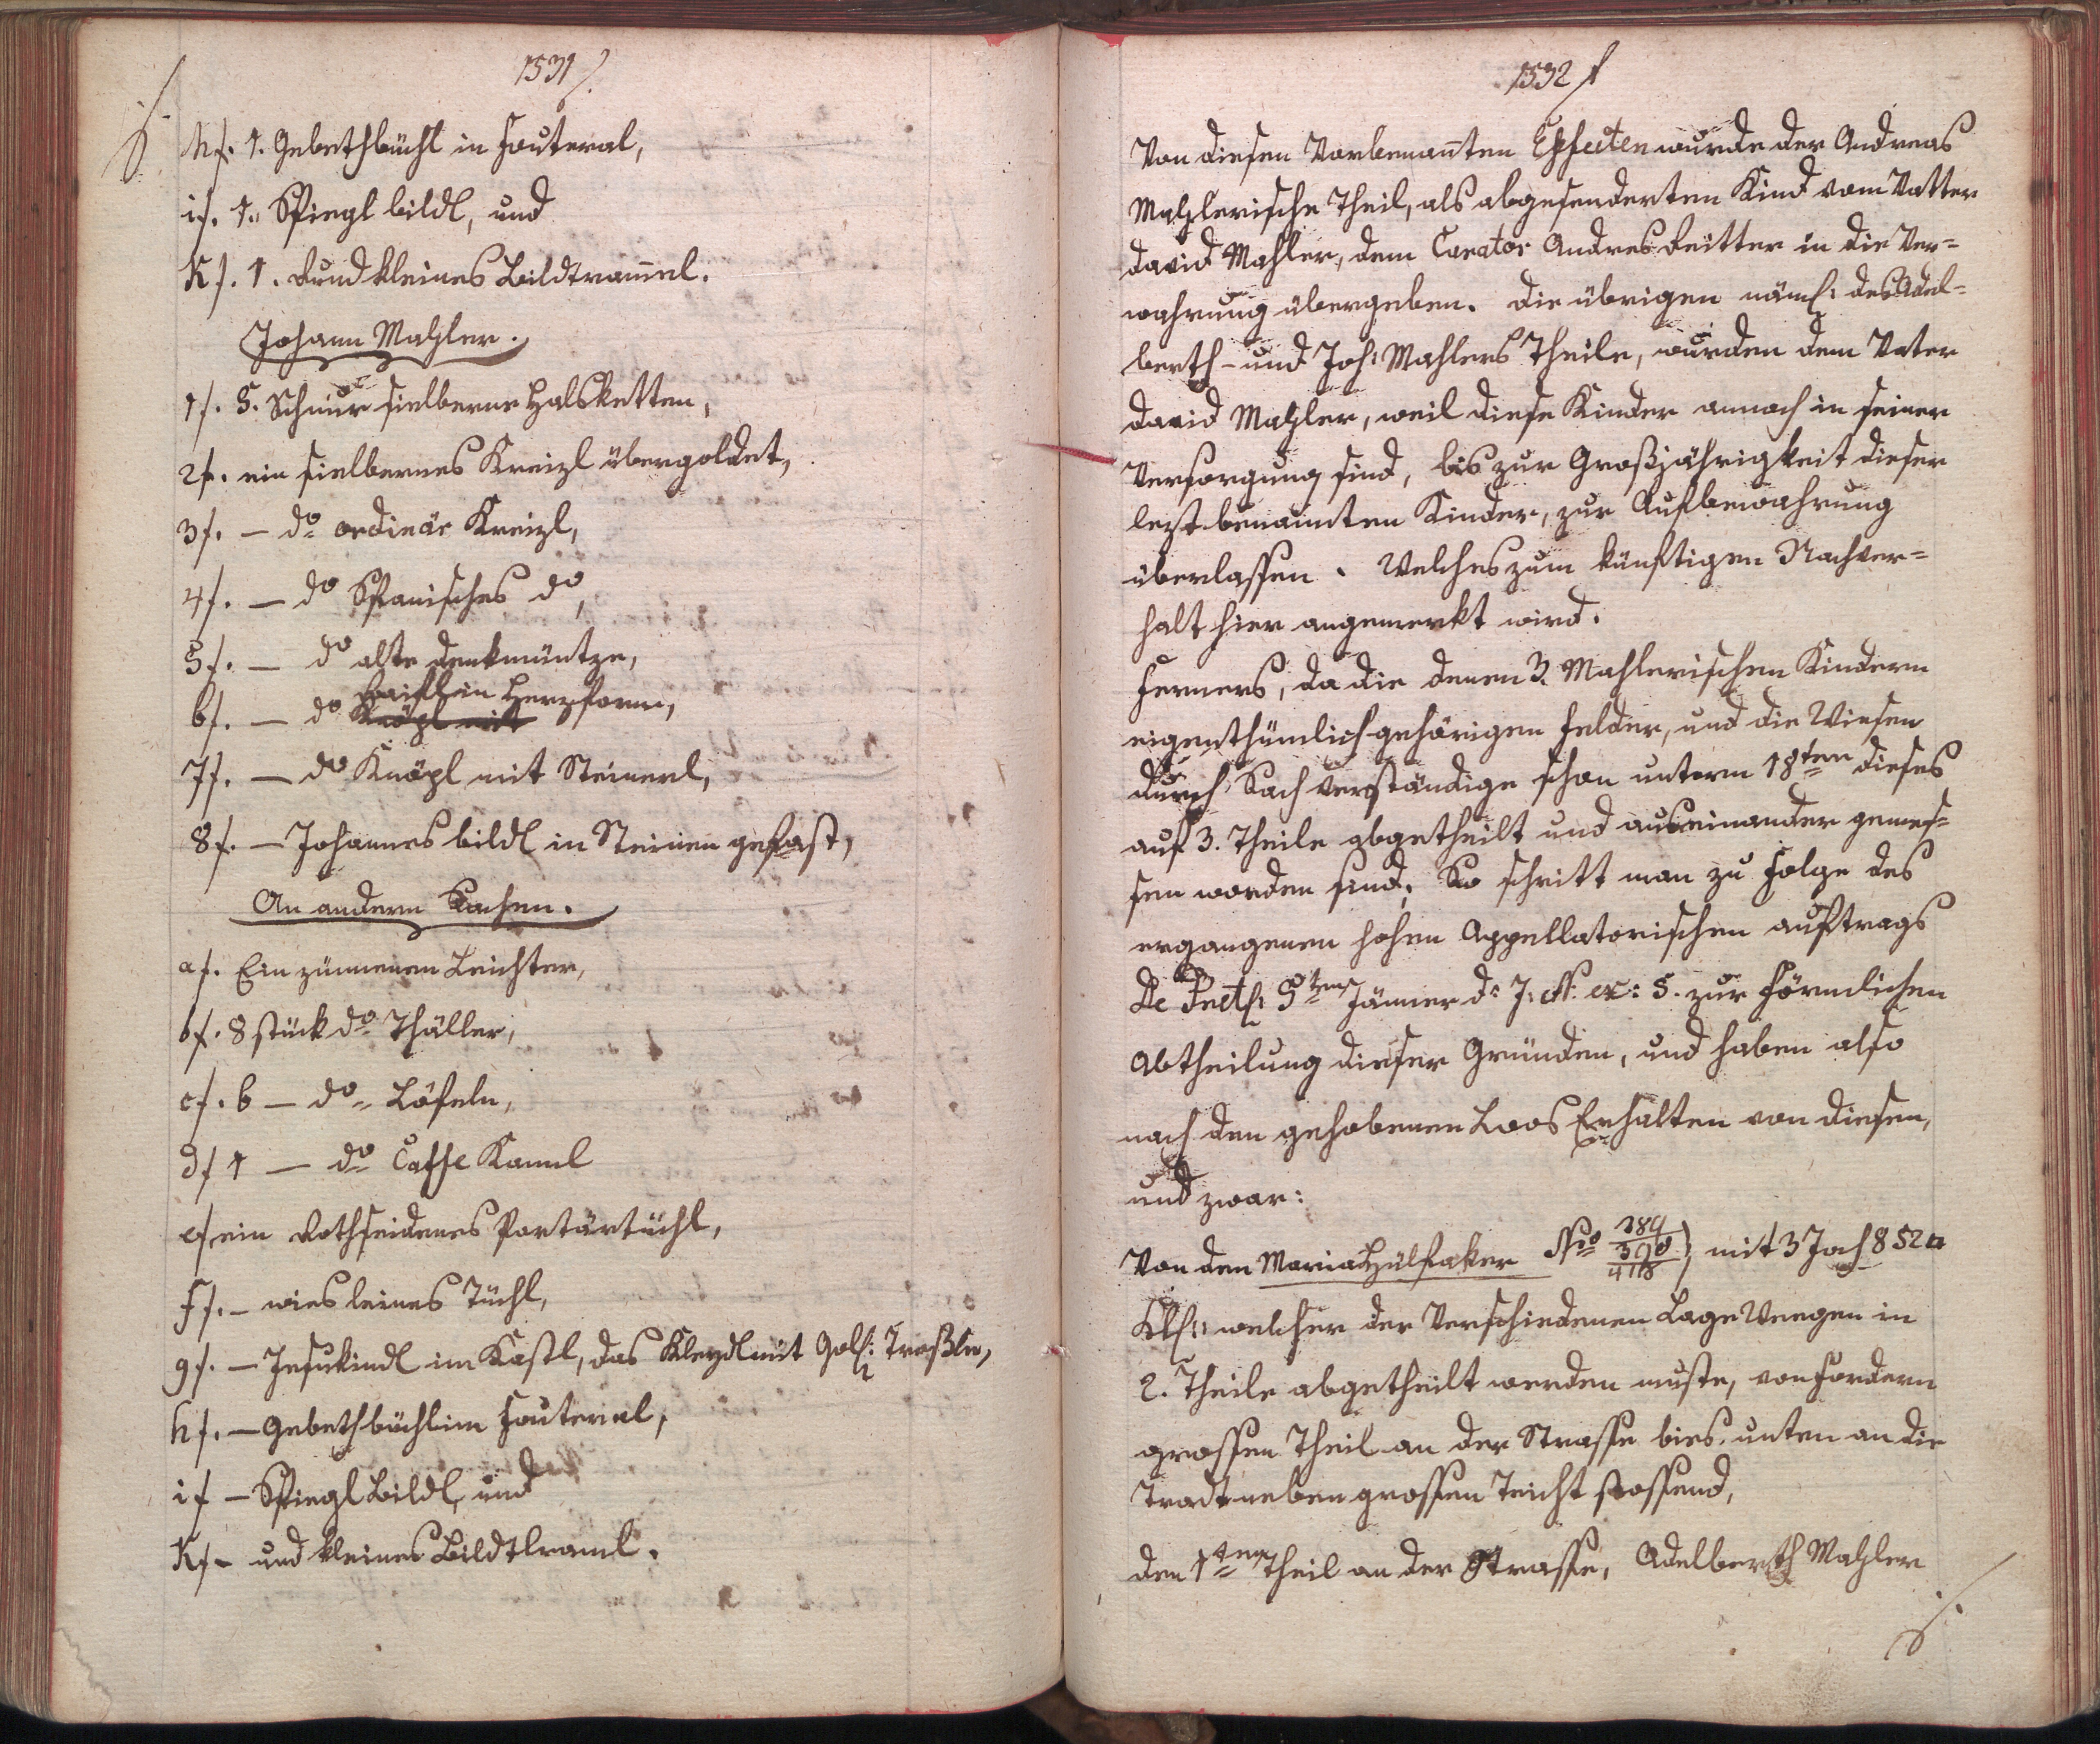 1531/.
h/. 1. Gebethbüchl in Fouteral,
i/. 1. Spiegl bildl, und
K/. 1. Rund kleines Bildtrammel.
Johann Mahler.
1/. 5. Schnür sielberne Halsketten,
2/. ein sielbernes Kreizl übergoldet,
3/. — do ordinär Kreizl,
4/. — do Spanisches do,
5/. — do alte denkmüntze,
6/. — do in Herzform,
7/. — do Knöpl mit Steinerl,
8/. — Johannes bildl in Steinen gefast,
An andern Sachen.
a/. Ein zünnenen Leichter,
b/. 8 stück do Thäller,
c/. 6 — do Löfeln,
d/ 1 — do Caffe Kannl
e/ ein Rothseidenes Portärtüchl,
f/. — wies leines Tüchl,
g/. — Jesukindl im Kastl, das Kleydl mit Gol: Traßln,
h/. — Gebethbüchl im Fouteral,
i/ — Spiegl Bildl, und
K/ — und kleines Bildtraml.
1532/
Von diesen Vorbenanten Effecten wurde der Andreas
Mahlerische Theil, als abgesenderten Kind vom Vatter
david Mahler, dem Curator Andres Reitter in die Ver=
wahrung übergeben. die übrigen näml: des Adel=
berth- und Joh: Mahlers Theile, wurden dem Vater
david Mahler, weil diese Kinder annoch in seiner
Versorgung sind, bis zur Großjährigkeit dieser
lezt benannten Kinder, zur Aufbewahrung
überlassen. Welches zum künftigen Nachver=
halt hier angemerkt wird.
Ferners, da die denen 3. Mahlerischen Kindern
eigenthümlich gehörigen Felder, und die Wiesen
durch Sach verständige schon unterm 18ten dieses
auf 3. Theile abgetheilt und auseinander gemes=
sen worden sind; So schritt man zu Folge des
ergangenen hohen Appellatorischen auftrags
De 5ten Jänner d: J: ex: 5. zur Förmlichen
Abtheilung dieser Gründen, und haben also
nach den gehobenen Loos Erhalten von diesen,
und zwar:
Von den Mariahülfaker No 389 390 418 mit 3 Joch 852 □
Klf: welcher der Verschiedenen Lage Wegen in
2. Theile abgetheilt werden muste, von Fordern
grossen Theil an der Strasse bies unten an die
neben grossen Teicht stossend,
den 1ten Theil an der Strasse, Adelberth Mahler